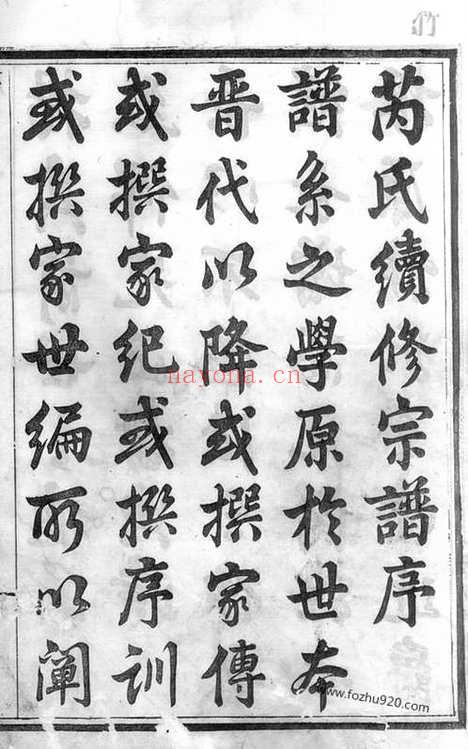 芮氏續修宗譜序
譜系之學原於世本
晋代以降或撰家傳
或撰家紀或撰序訓
或撰家世編所以闡
nayona.cn
www.fozhu920.com